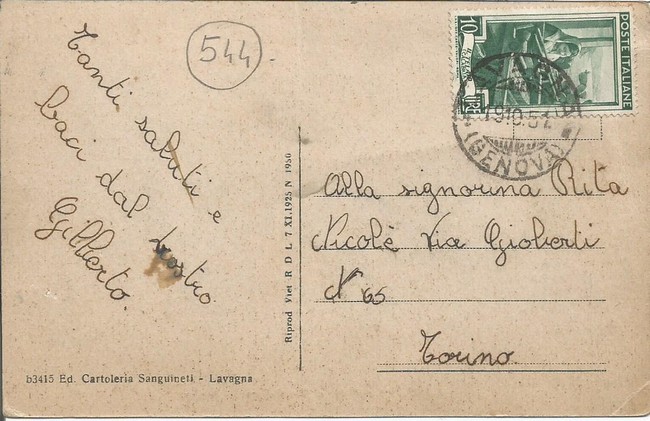 544
Tanti saluti e
baci dal vostro
Gilberto.
b3415 Ed. Cartoleria Sanguineti - Lavagna
Riprod Viet R D L 7 XI. 1925 N 1950
POSTE ITALIANE
10
LIRE
(GENOVA)
Alla signorina Rita
Nicolè Via Gioberti
N° 65
Torino